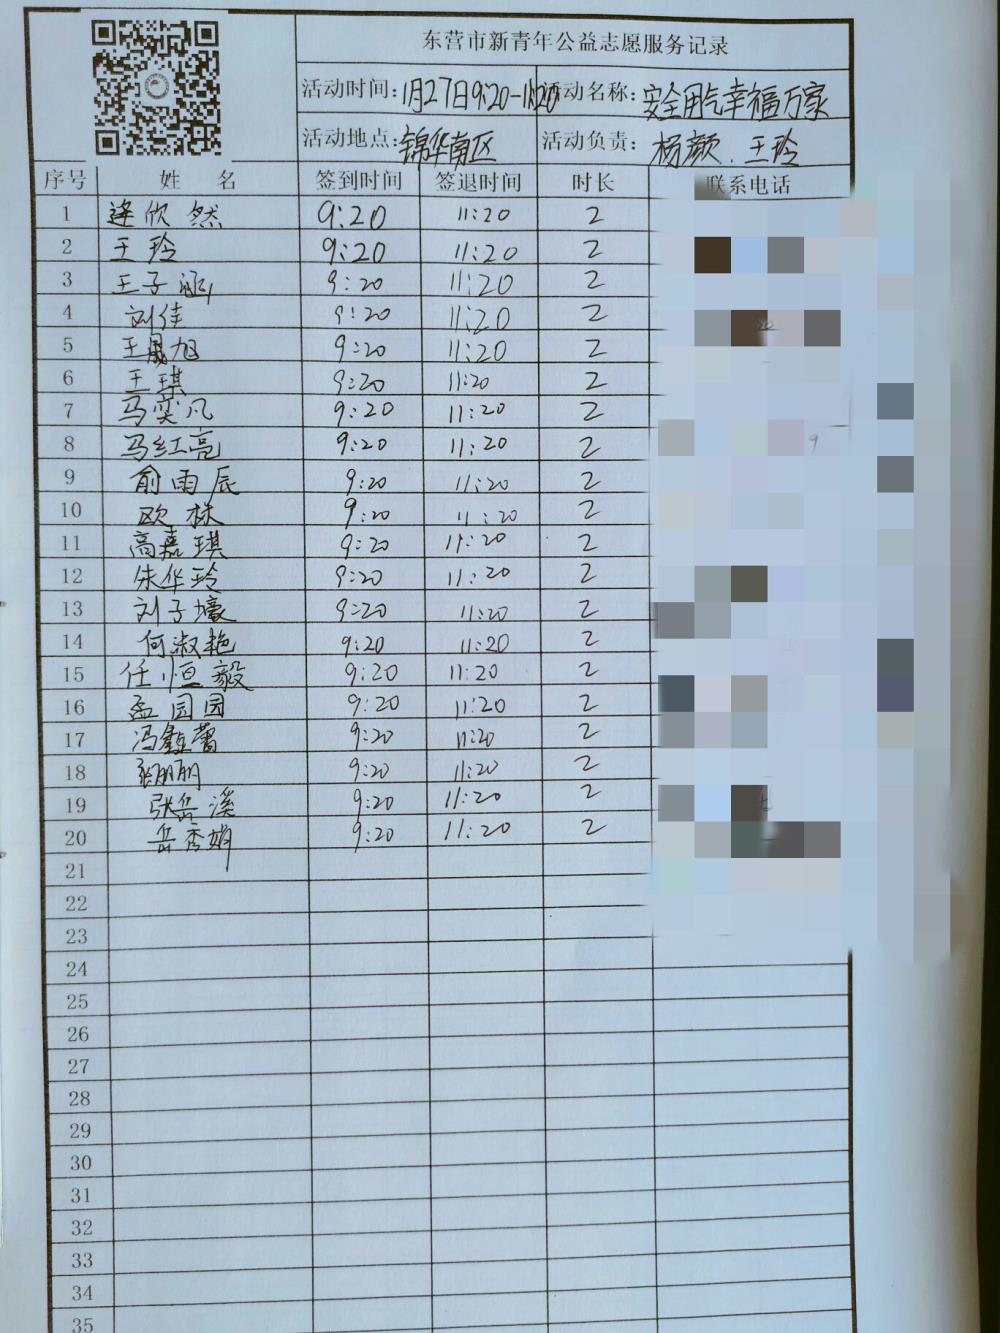 东营市新青年公益志愿服务记录
活动时间: 1月27日9:20-11:20 活动名称: 安全用气幸福万家
活动地点: 锦华南区 活动负责: 杨颜、王玲
序号 姓 名 签到时间 签退时间 时长 联系电话
1 欣然 9:20 11:20 2
2 王玲 9:20 11:20 2
3 王子涵 9:20 11:20 2
4 刘佳 9:20 11:20 2
5 王晟旭 9:20 11:20 2
6 王琪 9:20 11:20 2
7 马奕凡 9:20 11:20 2
8 马红亮 9:20 11:20 2
9 俞雨辰 9:20 11:20 2
10 欧林 9:20 11:20 2
11 高嘉琪 9:20 11:20 2
12 朱华玲 9:20 11:20 2
13 刘子壕 9:20 11:20 2
14 何淑艳 9:20 11:20 2
15 任恒毅 9:20 11:20 2
16 孟园园 9:20 11:20 2
17 冯鑫蕾 9:20 11:20 2
18 张丽丽 9:20 11:20 2
19 张岳溪 9:20 11:20 2
20 岳秀娟 9:20 11:20 2
21
22
23
24
25
26
27
28
29
30
31
32
33
34
35